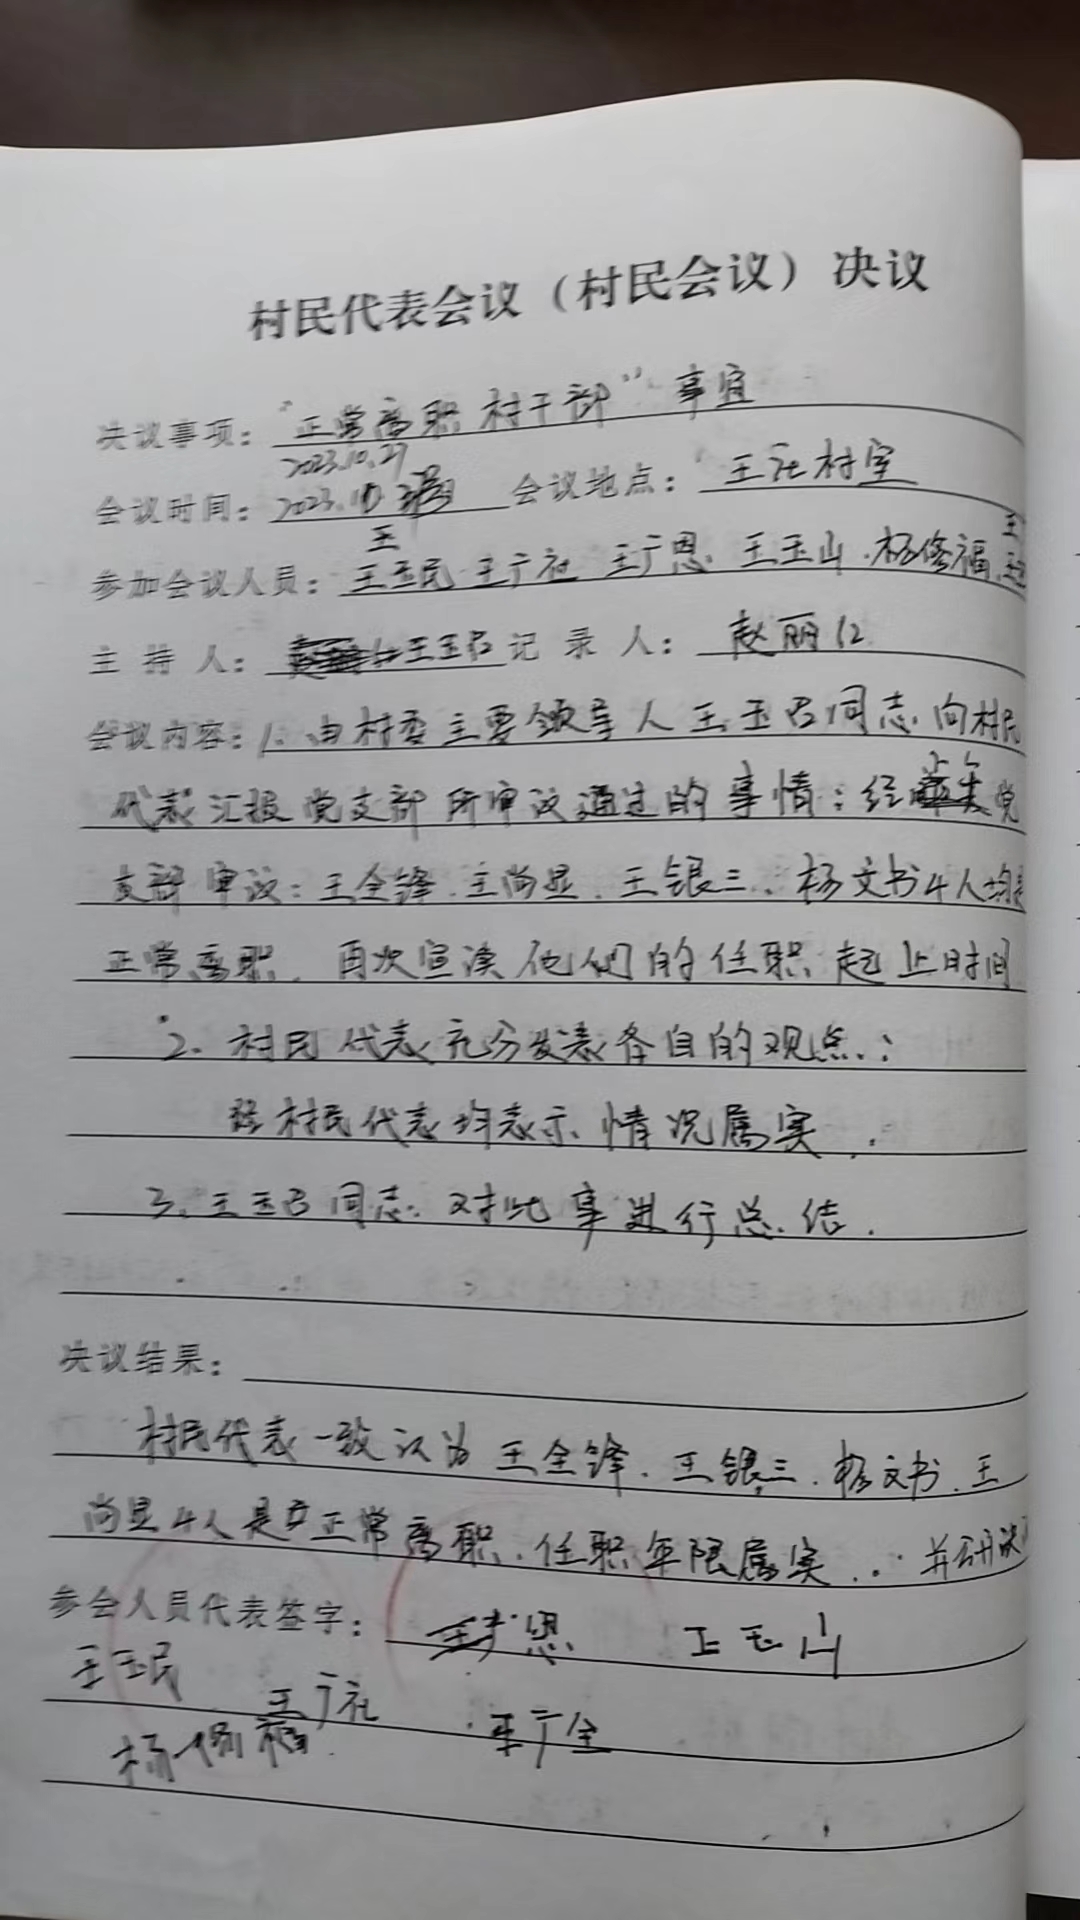 村民代表会议（村民会议）决议
决议事项：“正常离职村干部”事宜
2023.10.27
会议时间：2023.10 会议地点：王社村室
王
参加会议人员：王玉民 王广社 王广恩 王玉山、杨俢福、
主持人：王玉召 记录人：赵丽红
会议内容：1、由村委主要领导人王玉召同志向村民
代表汇报党支部所审议通过的事情：经党
支部审议：王全锋、王尚显、王银三、杨文书4人均是
正常离职，再次宣读他们的任职起止时间
2、村民代表充分发表各自的观点：
村民代表均表示情况属实．
3、王玉召同志对此事进行总结．
决议结果：
村民代表一致认为王全锋、王银三、杨文书、王
尚显4人是正常离职，任职年限属实．并
参会人员代表签字：王广恩 王玉山
王玉民 王广社 王广全
杨俢福